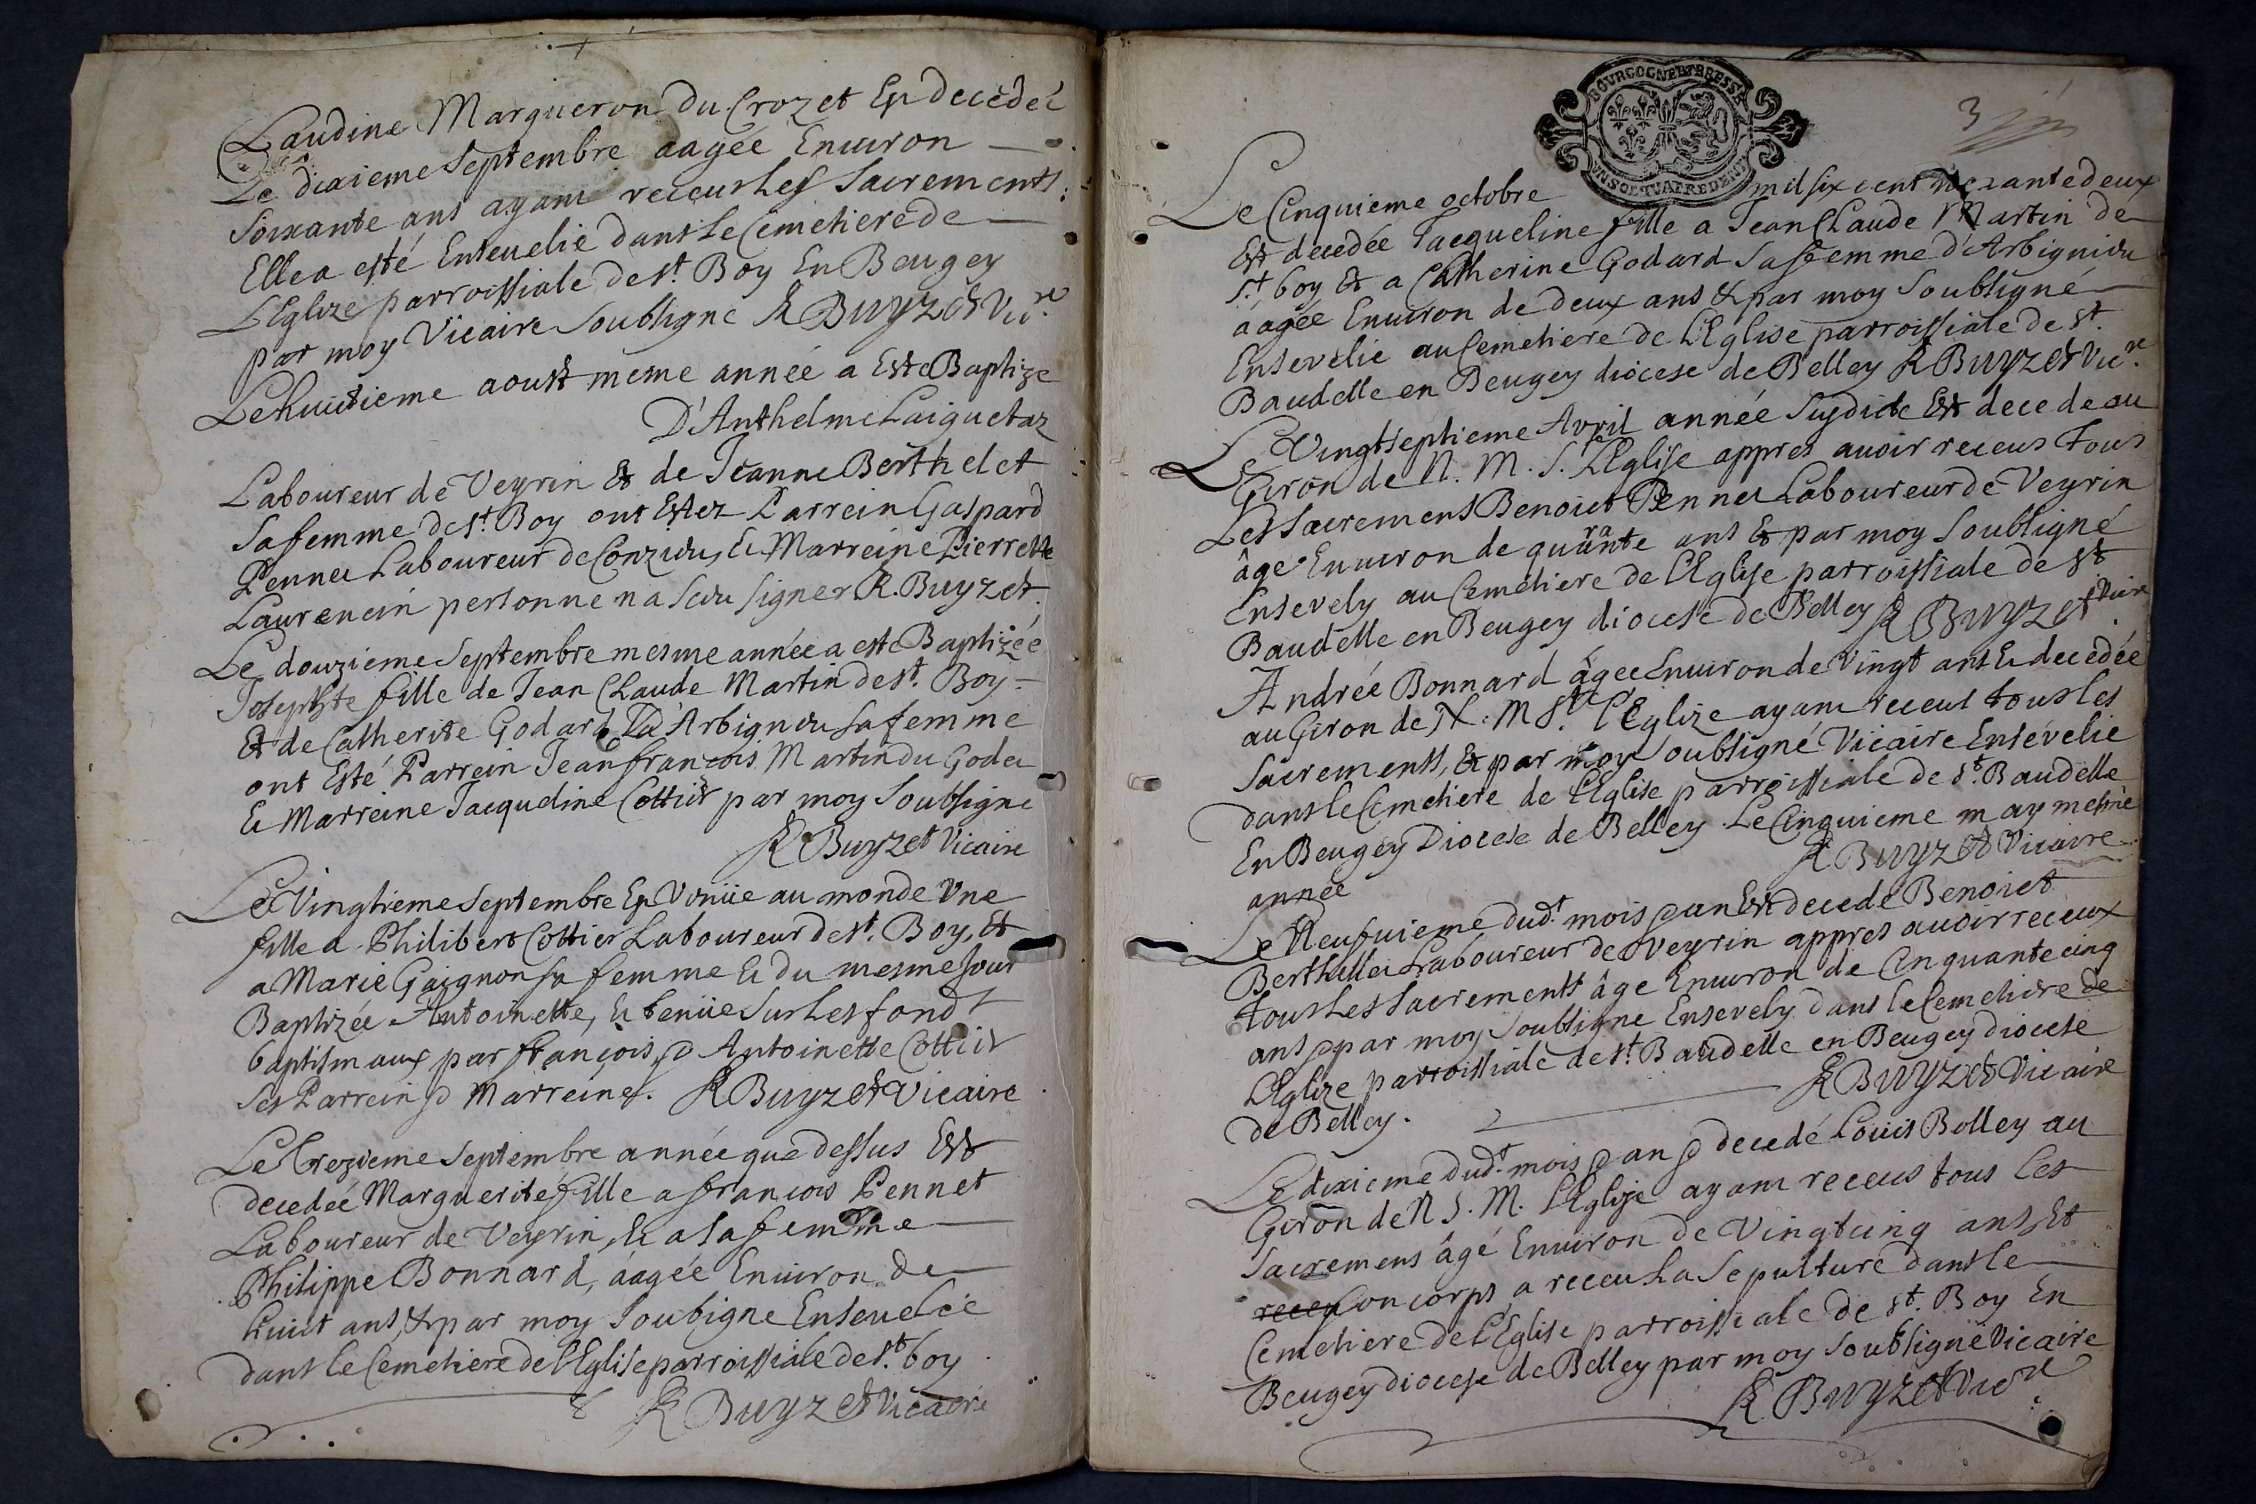 Claudine Margueron du Crozet Est decedeé
Le dixieme septembre aagée Enuiron
soixante ans ayant receus les sacrements
Elle a esté Enseuelie dans le cemetiere de
L'Eglize parroissiale de st. Boy En Beugey
par moy Vicaire soubsigne R Buyzet Vicre
Le huictieme aoust meme année a Esté Baptize
D'Anthelme Laiguetaz
Laboureur de Veyrin & de Jeanne Berthelet
sa femme de st. Boy ont Estez Parrein Gaspard
Pennet Laboureur de Conzieu, & Marreine Pierrette
Laurencin personne n a sceu signer R. Buyzet.
Le douzieme septembre mesme année a esté Baptizée
Josephte fille de Jean Claude Martin de st. Boy
Et de Catherite Godard d'Arbignieu sa femme
ont Esté Parrein Jean françois Martin du Godet
& Marreine Jacqueline Cottier par moy soubsigne
R Buyzet Vicaire
Le Vingtieme septembre Est Venüe au monde Vne
fille a Philibert Cottier Laboureur de st. Boy, Et
a Marie Gaignon sa femme & du mesme Jour
Baptizée Antoinette, & tenüe sur les fonds
baptismaux par françois, & Antoinette Cottier
ses Parrein & Marreine. R Buyzet Vicaire
Le trezieme septembre année que dessus Est
decedeé Marguerite fille a françois Pennet
Laboureur de Veyrin, & a sa femme
Philippe Bonnard, aagée Enuiron de
huict ans, & par moy soubigne Enseuelie
dans le Cemetiere de l'Eglise parroissiale de st. boy
R Buyzet Vicaire
BOURGOGNE ET BRESSE
3
Le Cinquieme octobre mil six cent nonante deux
Est decedée Jacqueline fille a Jean Claude Martin de
st. boy & a Catherine Godard sa femme d'Arbignieu
aagée Enuiron de deux ans & par moy soubsigné
Ensevelie au Cemetiere de l'Eglise parroissiale de st.
Baudelle en Beugey diocese de Belley R Buyzet Vicre
Le Vingtseptieme Avril année susdicte Est decede au
Giron de N. M. Ste L'Eglise appres auoir receus tous
Les sacremens Benoict Pennet Laboureur de Veyrin
âge Enuiron de quarante ans & par moy soubsigné
Ensevely au Cemetiere de l'Eglise parroissiale de st
Baudelle en Beugey diocese de Belley R Buyzet Vicre
Andrée Bonnard âgee Enuiron de Vingt ans Est decedée
au Giron de N. M. Ste. l'Eglize ayant receus tous les
sacrements, & par moy soubsigné Vicaire Ensévelie
dans le Cemetiere de l'Eglise parroissiale de st. Baudelle
En Beugey Diocese de Belley. Le Cinquieme may mesme
année R Buyzet Vicaire
Le Neufuieme dudt. mois & an Est decede Benoict
Berthelet Laboureur de Veyrin appres auoir receux
tous Les sacrements âge Enuiron de Cinquante cinq
ans & par moy soubsigne Ensevely dans le Cemetiere de
L'Eglize parroissiale de st. Baudelle en Beugey diocese
de Belley. R Buyzet Vicaire
Le dixieme dudt. mois & an & decedé Louis Bolley au
Giron de N S. M. L'Eglise ayant receus tous les
sacremens âgé Enuiron de Vingt cinq ans, Et
receu son corps a receu La sepulture dans le
Cemetiere de l'Eglise parroissiale de st. Boy En
Beugey diocese de Belley par moy soubsigné Vicaire
R Buyzet Vicre